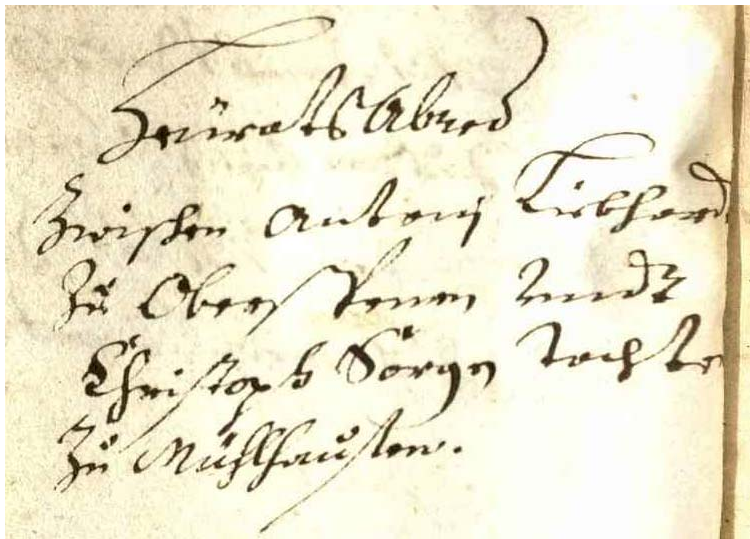 HeüratsAbred
Zwischen Antonj Liebhard
Zu Oberstenen Vnndt
Christoph Sörgen Tochte
Zu Mühlhaußen.